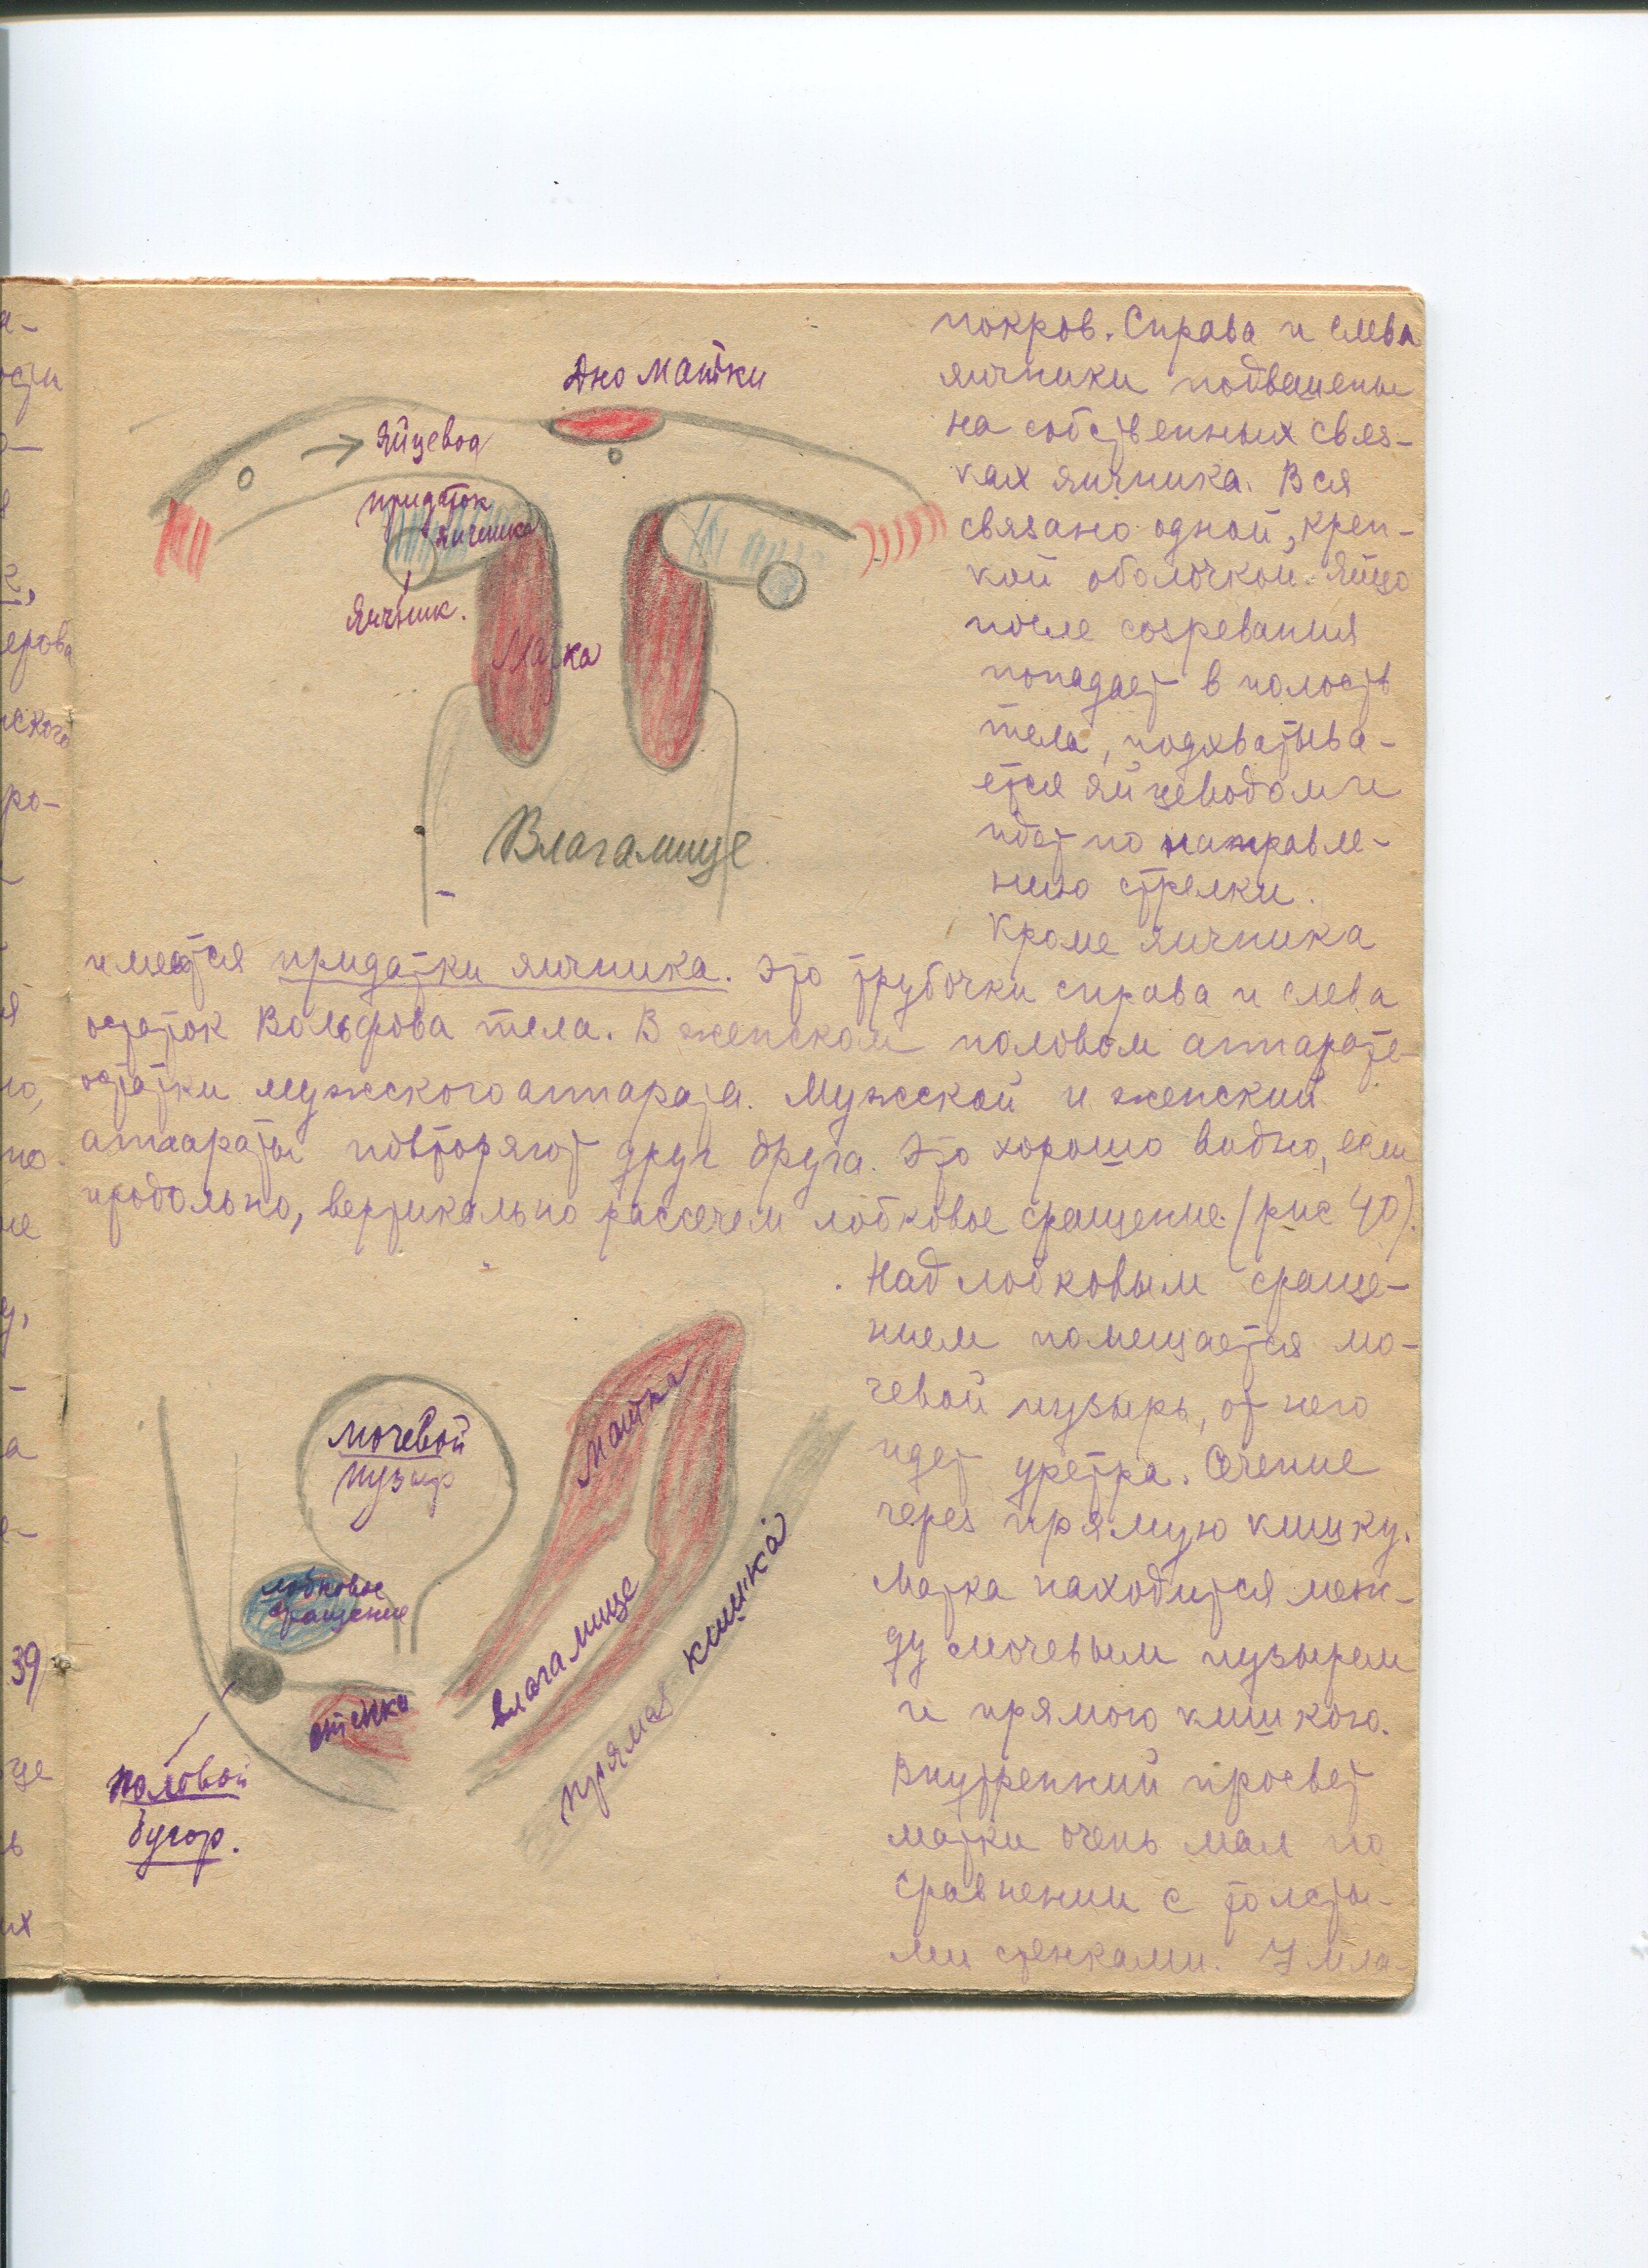 Дно матки
яйцевод
придаток
яичника
Яичник.
Матка
Влагалище
покров. Справа и слева
яичники подвешены
на собственных связ-
ках яичника. Вся
связано одной, креп-
кой оболочкой. Яйцо
после созревания
попадает в полость
тела, подхватыва-
ется яйцеводом и
идет по направле-
нию стрелки.
Кроме яичника
имеется придатки яичника. Это трубочки справа и слева
остаток Вольфова тела. В женском половом аппарате-
остатки мужского аппарата. Мужской и женский
аппараты повторяют друг друга. Это хорошо видно, если
продольно, вертикально рассечем лобковое сращение (рис 40).
Над лобковым сраще-
нием помещается мо-
чевой пузырь, от него
идет уретра. Сечение
через прямую кишку.
Матка находится меж-
ду мочевым пузырем
и прямою кишкою.
Внутренний просвет
матки очень мал по
сравнении с толсты-
ми стенками. У мла-
мочевой
пузыр
матка
лобковое
сращение
стенка
влагалище
прямая кишка
половой
бугор.
а-
ости
о-
е,
ерова
ского
ро-
но,
по-
39
ще
их